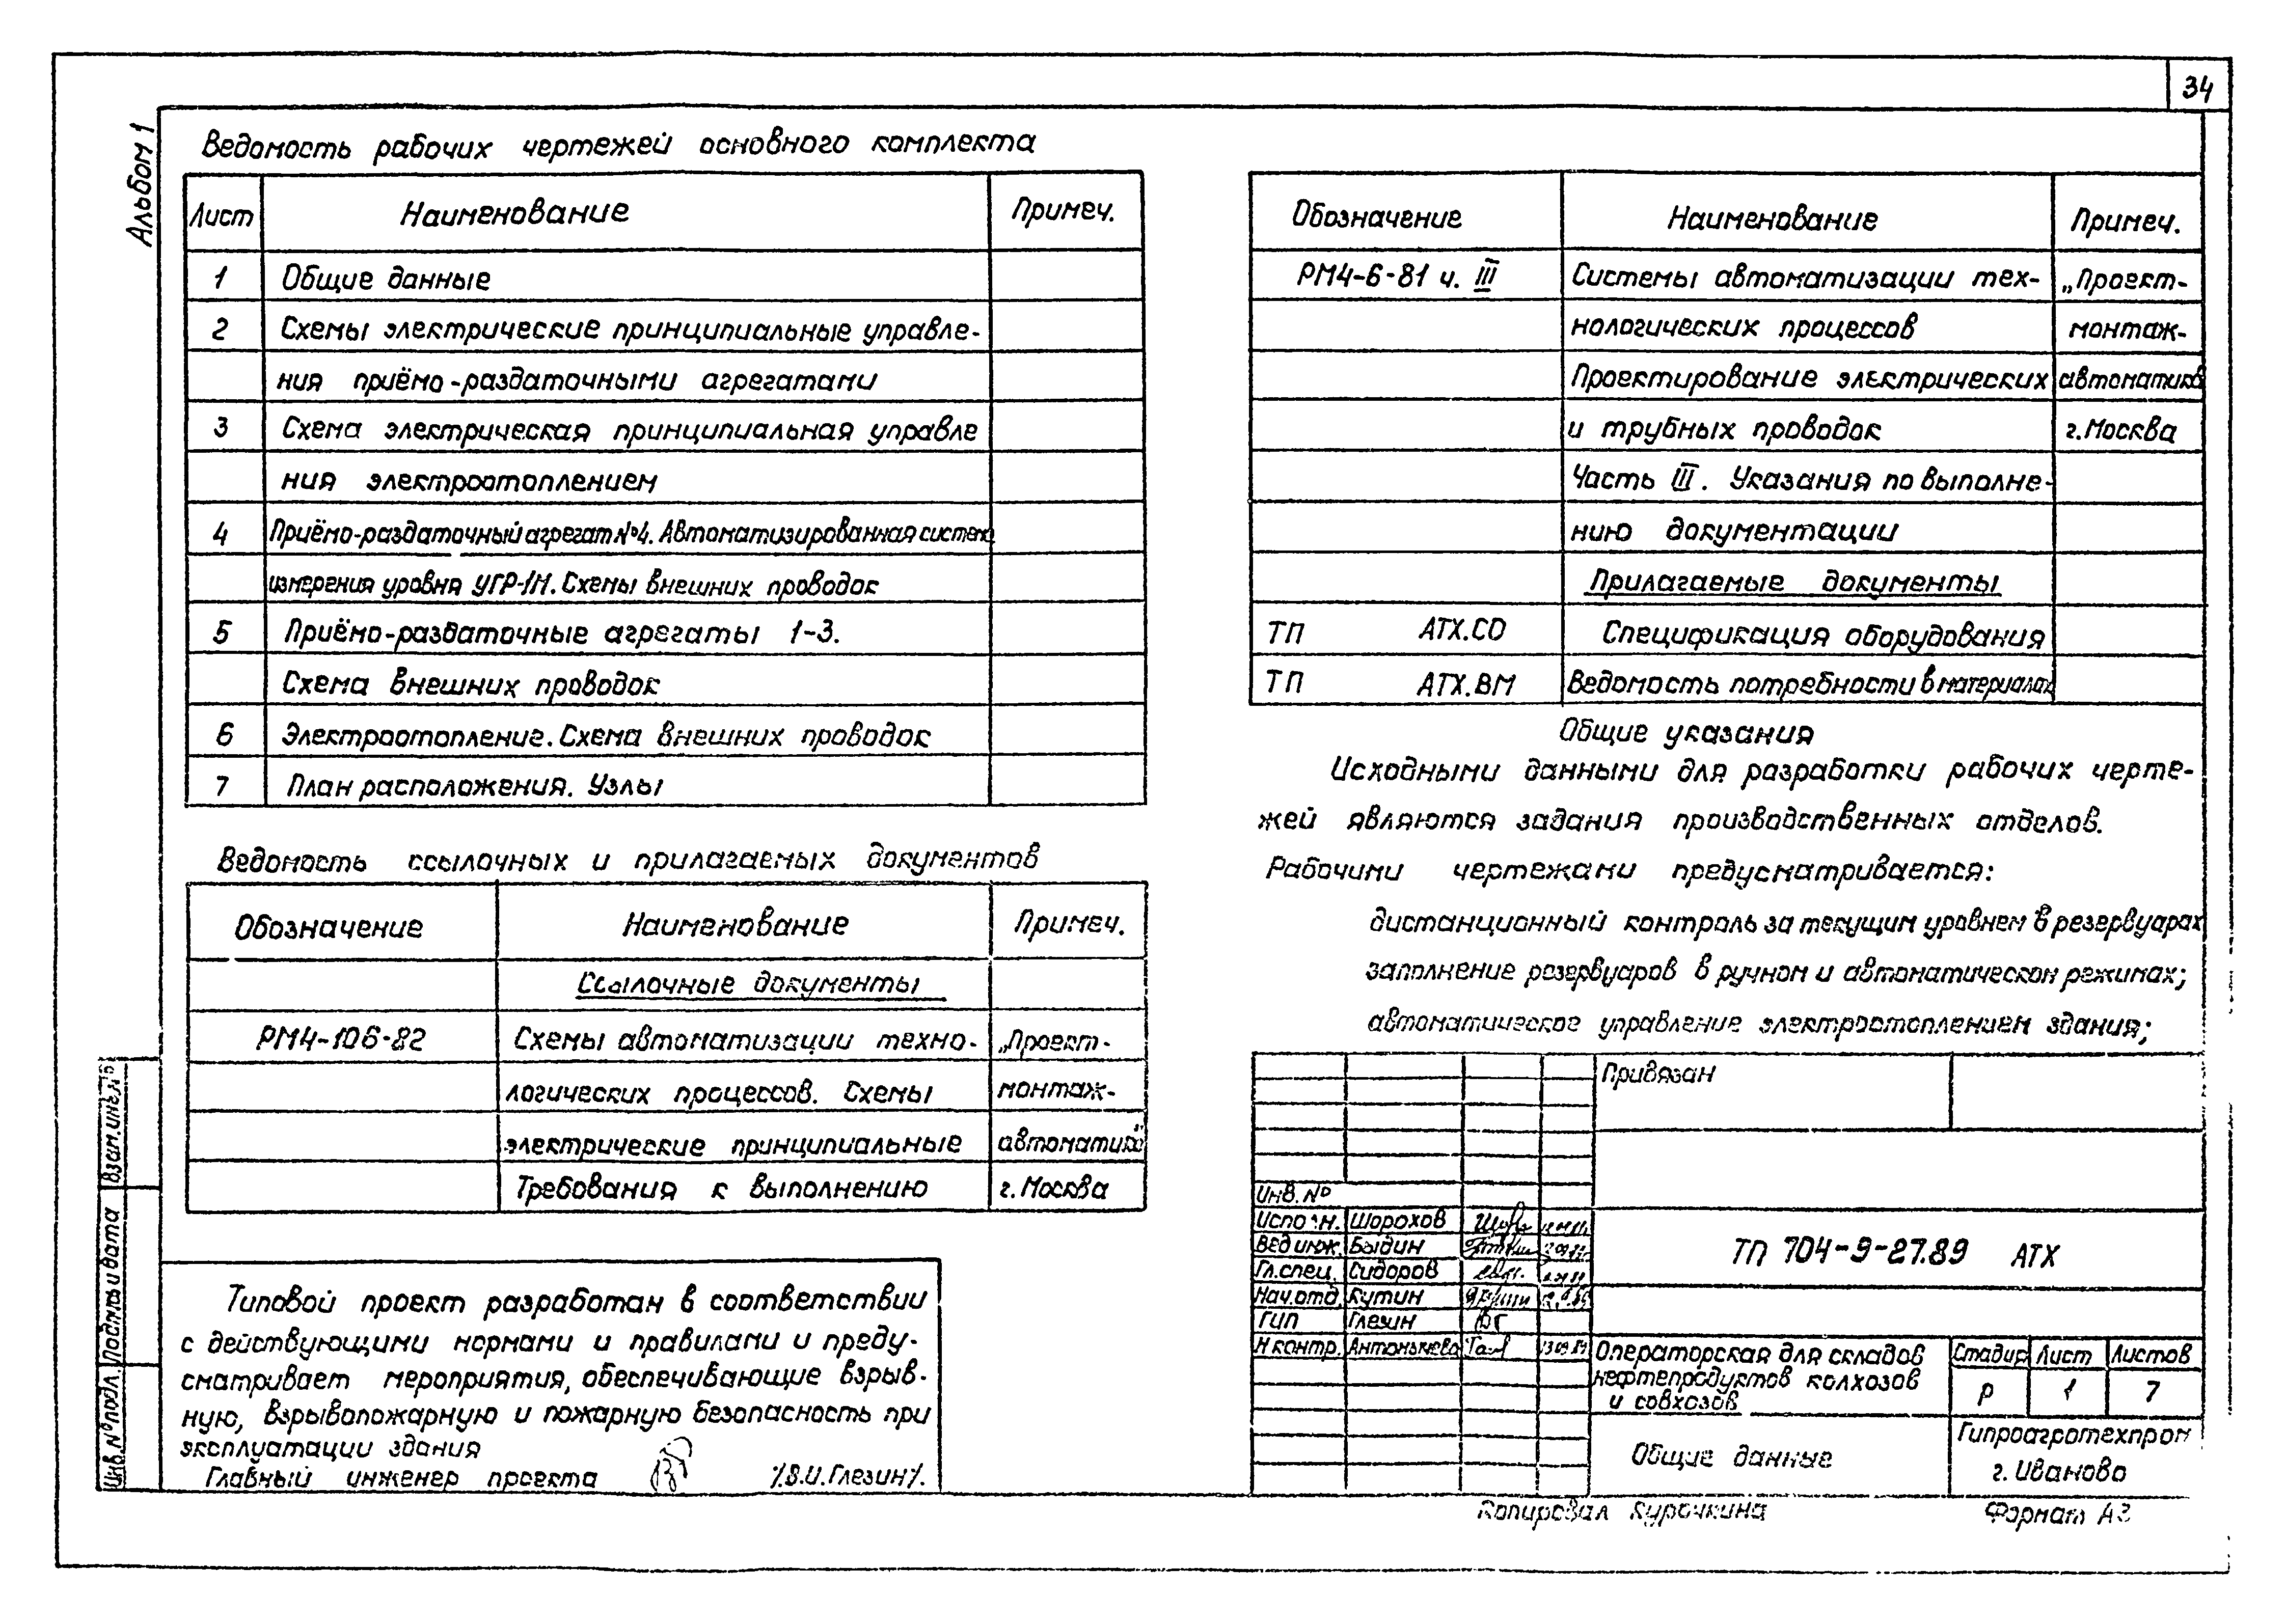 34
Альбом 1
Ведомость рабочих чертежей основного комплекта
Лист Наименование Примеч.
1 Общие данные
2 Схемы электрические принципиальные управле-
ния приёмо-раздаточными агрегатами
3 Схема электрическая принципиальная управле
ния электроотоплением
4 Приёмо-раздаточный агрегат №4. Автоматизированная система
измерения уровня УГР-1М. Схемы внешних проводок
5 Приёмо-раздаточные агрегаты 1-3.
Схема внешних проводок
6 Электроотопление. Схема внешних проводок
7 План расположения. Узлы
Ведомость ссылочных и прилагаемых документов
Обозначение Наименование Примеч.
Ссылочные документы
РМ4-106-82 Схемы автоматизации техно- „Проект-
логических процессов. Схемы монтаж-
электрические принципиальные автоматика"
Требования к выполнению г. Москва
Типовой проект разработан в соответствии
с действующими нормами и правилами и преду-
сматривает мероприятия, обеспечивающие взрыв-
ную, взрывопожарную и пожарную безопасность при
эксплуатации здания
Главный инженер проекта /В.И.Глезин/.
Обозначение Наименование Примеч.
РМ4-6-81 ч. III Системы автоматизации тех- „Проект-
нологических процессов монтаж-
Проектирование электрических автоматика
и трубных проводок г. Москва
Часть III. Указания по выполне-
нию документации
Прилагаемые документы
ТП АТХ.СО Спецификация оборудования
ТП АТХ.ВМ Ведомость потребности в материалах
Общие указания
Исходными данными для разработки рабочих черте-
жей являются задания производственных отделов.
Рабочими чертежами предусматривается:
дистанционный контроль за текущим уровнем в резервуарах
заполнение резервуаров в ручном и автоматическом режимах;
автоматическое управление электроотоплением здания;
Привязан
Инв. №
Исполн. Шорохов
Вед инж. Быдин
Гл. спец. Сидоров
Нач. отд. Кутин
ГИП Глезин
Н контр.
ТП 704-9-27.89 АТХ
Операторская для складов
нефтепродуктов колхозов
и совхозов
Стадия Лист Листов
Р 1 7
Общие данные
Гипроагротехпром
г. Иваново
Копировал Курочкина Формат А3
Инв. № подл. Подпись и дата Взам. инв. №